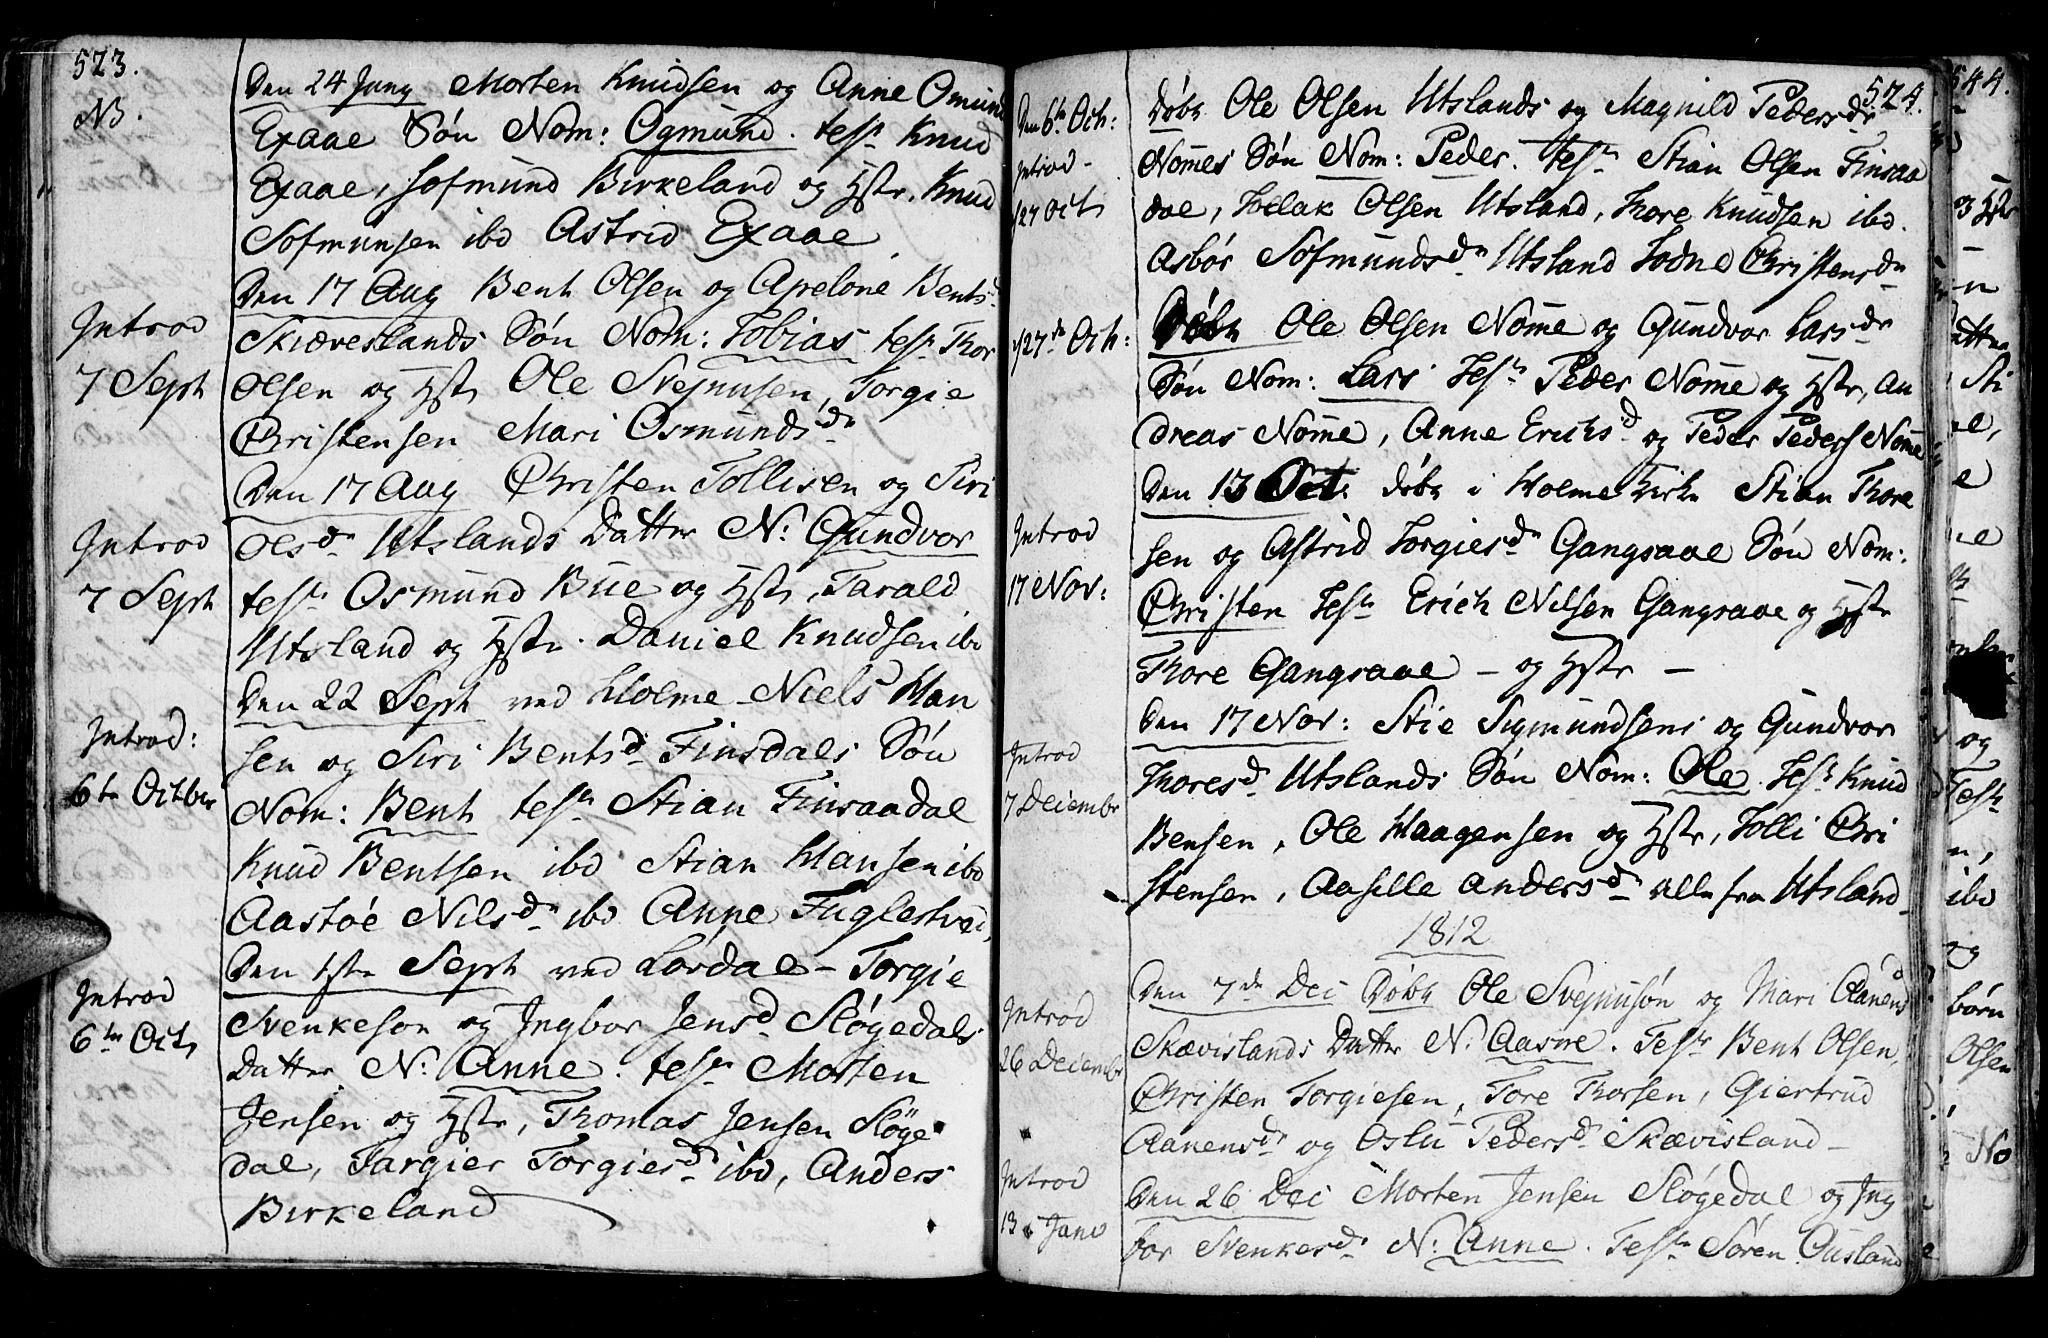 523.
NB.
Den 24 Juny Morten Knudsen og Anne Omund
Exaae Søn Nom: Ogmund. test. Knud
Exaae, Sofmund Birkeland og Hstr. Knud
Sofmunsen ibd Astrid Exaae
Den 17 Aug Bent Olsen og Apelone Bentsd.
Introd
Skiæveslands Søn Nom: Tobias test. Thor
7 Sept
Olsen og Hstr Ole Svejnusen, Torgie
Christensen Mari Osmundsdr
Den 17 Aug Christen Tollisen og Siri
Introd
Olsdr Utslands Datter N: Gundvor
7 Sept
test. Osmund Bue og Hstr. Tarald
Utsland og Hstr. Daniel Knudsen ibd
Den 22 Sept ved Holme Niels Han
Introd:
sen og Siri Bentsd. Finsdals Søn
6te Octbr
Nom: Bent test. Stian Finsaadal
Knud Bentsen ibd Stian Hansen ibd
Aastøe Nilsdr ibd Anne Fuglestved,
Den Sept ved Lørdal - Torgie
Introd
Svenkeson og Ingbor Jensd. Sløgedals
6te Oct,
Datter N: Anne. test. Morten
Jensen og Hstr, Thomas Jensen Sløge
dal, Targier Torgiersdr ibd, Anders
Birkeland
524.
Den 6te Oct:
Døbt Ole Olsen Utslands og Magnild Pedersdr
Introd -
Nomes Søn Nom: Peder. Test. Stian Olsen Finsaa
27 Oct
dal, Tollak Olsen Utsland, Thore Knudsen ibd.
Asbør Sofmundsdr Utsland Todne Christensdr
27de Oct:
Døbt Ole Olsen Nome og Gundvor Larsdr
Søn Nom: Lars Test. Peder Nome og Hstr, An
dreas Nome, Anne Erichsd. og Peder Peders Nome
Den 13 Oct: døbt i Holme Kirke Stian Thore
Introd
sen og Astrid Torgiesdr Gangsaae Søn Nom:
17 Nov:
Christen Test. Erich Nilsen Gangsaae og Hstr
Thore Gangsaae - og Hstr -
Den 17 Nov: Stie Sigmundsens og Gundvor
Introd
Thoresdr Utslands Søn Nom: Ole. Test. Knud
7 Decembr
Bensen, Ole Haagensen og Hstr, Tolli Chri
stensen, Aaselle Andersdr alle fra Utsland
1812
Den 7de Dec Døbt Ole Svejnusøn og Mari Aanensd
Introd
Skævislands Datter N: Aasne. Test. Bent Olsen,
26 Decembr
Christen Torgiesen, Tore Thorsen, Giertrud
Aanensdr og Oslu Pedersd. Skævisland -
Introd
Den 26 Dec Morten Jensen Sløgedal og Ing
13 Janv
bor Svenkersdr N: Anne. Test. Søren Ousland
544.